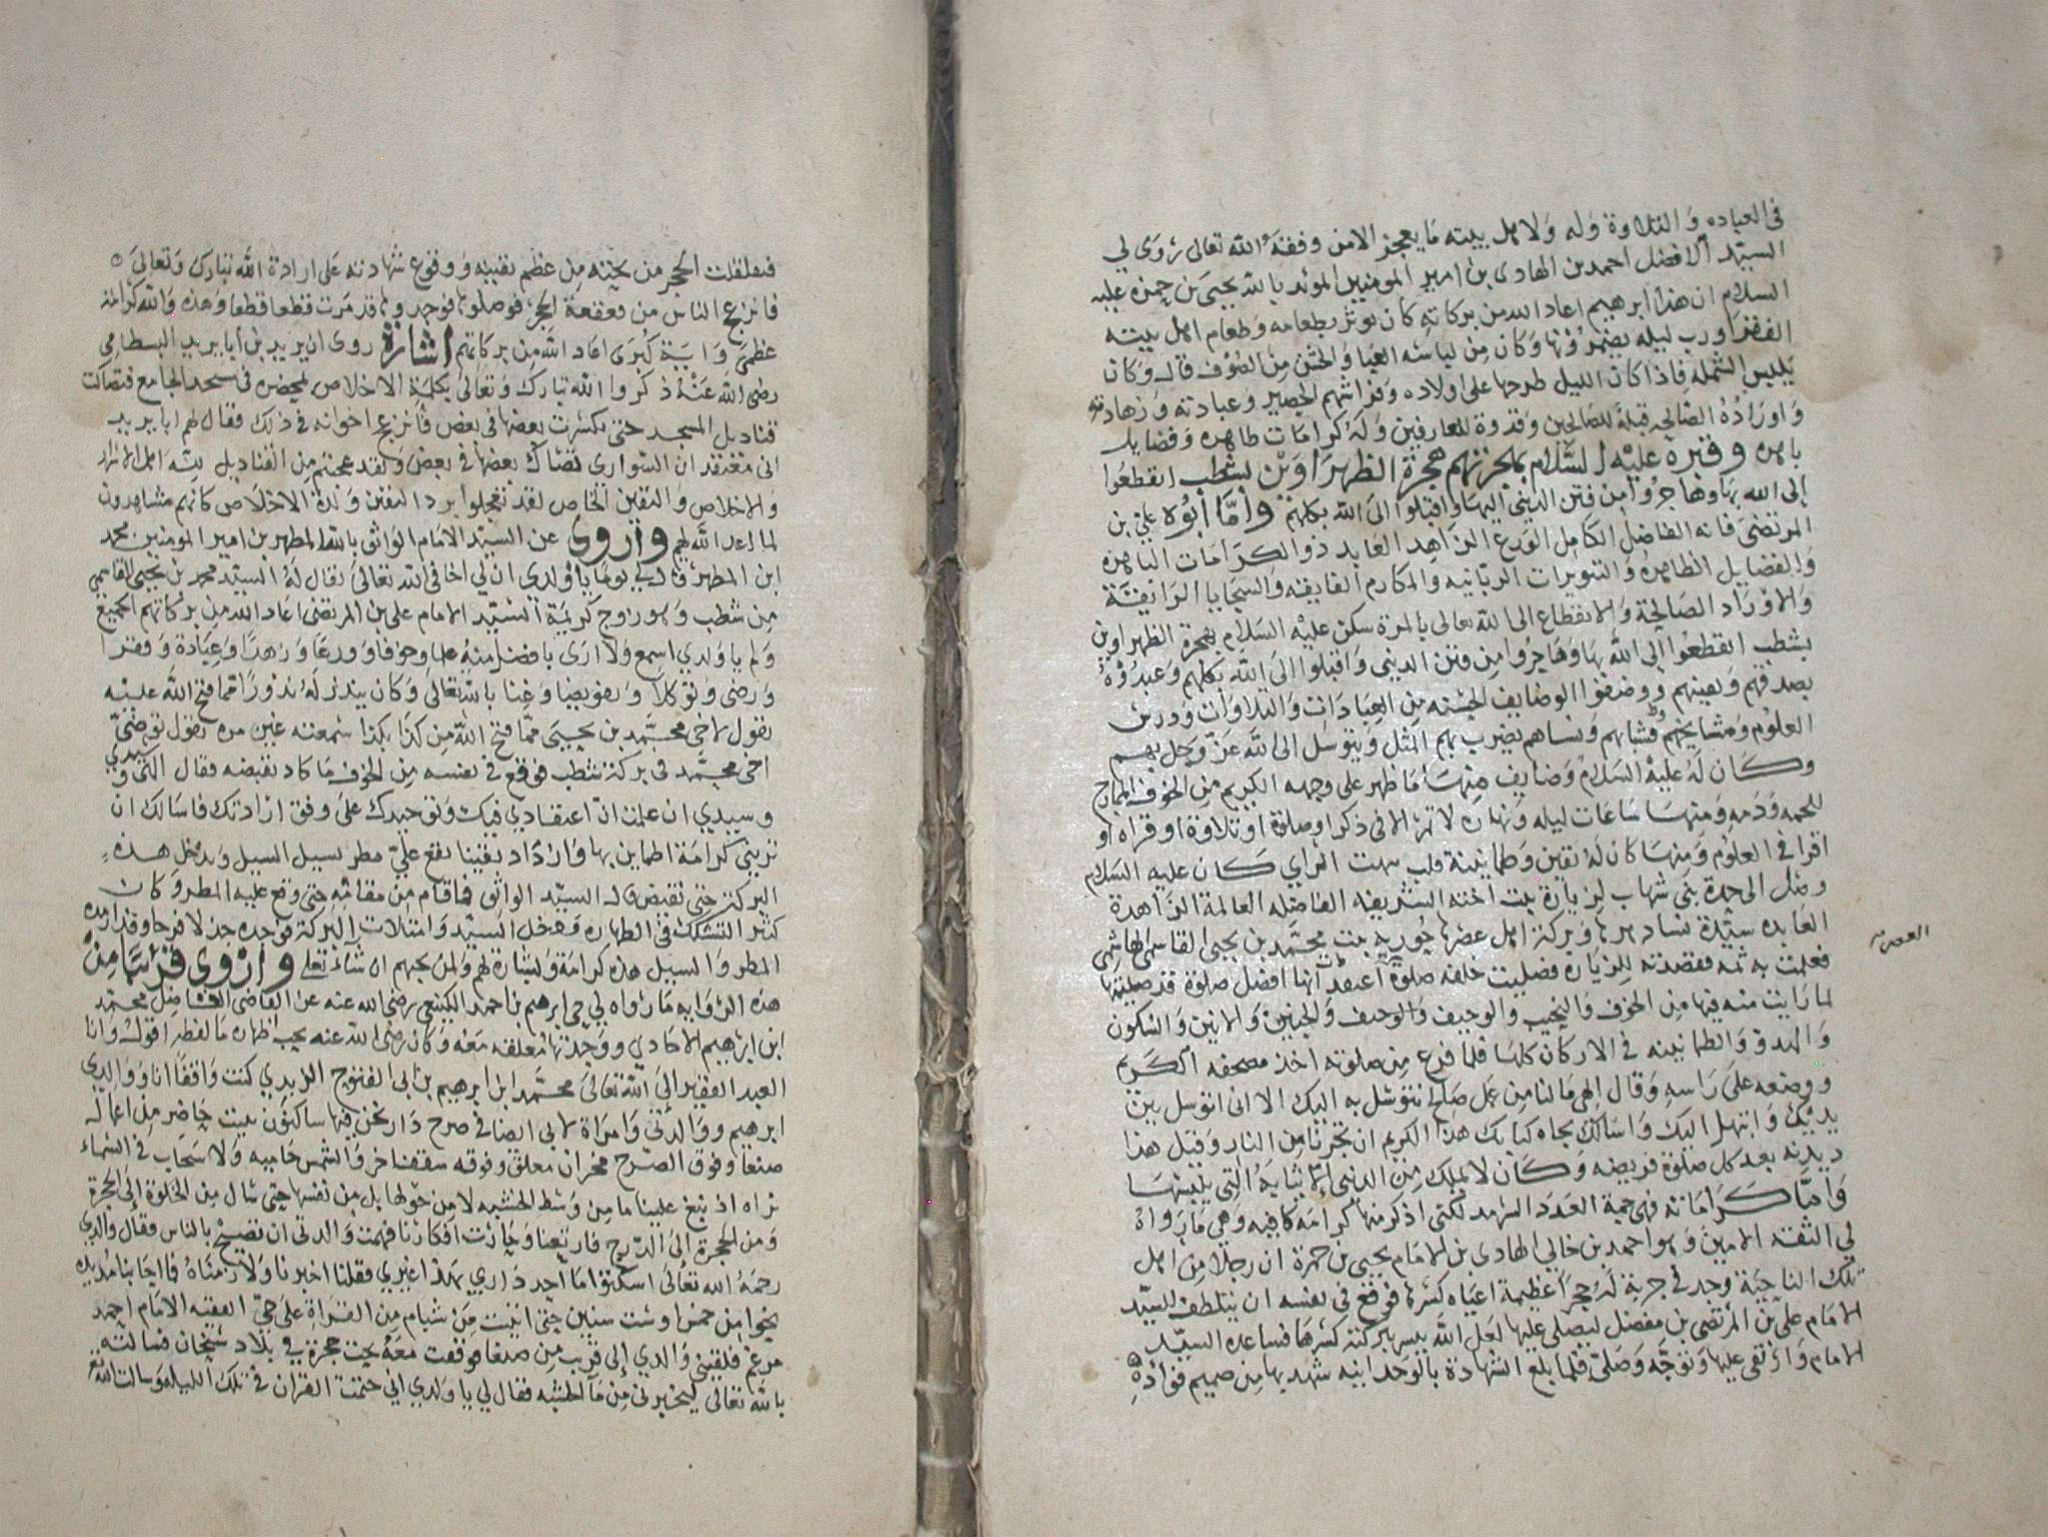 في العباده والتلاوة وله ولاهل بيته ما يعجز الا من وفقه الله تعالى روى لي
السيد الافضل احمد بن الهادي بن امير المومنين المؤيد بالله يحيى بن حمزه عليه
السلام ان هذا ابرهيم اعاد الله من بركاته كان يوثر بطعامه وطعام اهل بيته
الفقرا ورب ليله وكان من لباسه العبا والخشن من الصوف قال وكان
يلبس الشمله فاذا كان الليل طرحها على اولاده وفراشهم الحصير وعبادته وزهادته
واوراده الصالحه قبلة للصالحين وقدوة للعارفين وله كرامات ظاهره وفضايل
باهره وقبره عليه السلام هجرة الظهراوين بشظب انقطعوا
الى الله بها وهاجروا من فتن الدنيا اليها واقبلوا الى الله بكلهم واما ابوه علي بن
المرتضى فانه الفاضل الكامل الورع الزاهد العابد ذو الكرامات الباهره
والفضايل الظاهره والتنويرات الربانيه والمكارم الفايقه والسجايا الرايقة
والاوراد الصالحة والانقطاع الى الله تعالى بالمرة سكن عليه السلام بهجرة الظهراوين
بشظب انقطعوا الى الله بها وهاجروا من فتن الدنيا واقبلوا الى الله بكلهم وعبدوه
بصدقهم ويقينهم ووضفوا الوضايف الحسنه من العبادات والتلاوات ودرس
العلوم ومشايخهم ونساهم يضرب بهم المثل ويتوسل الى الله عز وجل بهم
وكان له عليه السلام وضايف منها ما ظهر على وجهه الكريم من الخوف الممازج
للحمه ودمه ومنها ساعات ليله ونهاره لا تمر الا في ذكر او صلوة او تلاوة او قراه او
اقرا في العلوم ومنها كان له يقين وطمانينة قلب الراي كان عليه السلام
وصل الى حدة بني شهاب لزيارة بنت اخته الشريفه الفاضله العالمة الزاهدة
العابده سيدة نساء دهرها وبركة اهل عصرها حورية بنت محمد بن يحيى القاسمي الهاشمي
فعلمت به ثمه فقصدته للزياره فصليت خلفه صلوة اعتقد انها افضل صلوة قد صليتها
لما رايت منه فيها من الخوف والنحيب والوجيف والحنين والانين والسكون
والهدو والطمانينه في الاركان كلها فلما فرغ من صلوته اخذ مصحفه الكريم
ووضعه على راسه وقال الهي ما لنا من عمل صالح نتوسل به اليك الا اني اتوسل بين
يديك وابتهل اليك واسالك بجاه كتابك هذا الكريم ان تجيرنا من النار وقيل هذا
ديدنه بعد كل صلوة فريضه وكان لا يملك من الدنيا الا ثيابه التي يلبسها
واما كراماته فهي جمة العدد لكني اذكر منها كرامه كافيه وهي ما رواه
لي الثقه الامين وهو احمد بن خالي الهادي بن الامام يحيى بن حمزة ان رجلا من اهل
تلك الناحية وجد في جربة له حجرا عظيمة اعياه كسرها فوقع في نفسه ان يتلطف للسيد
الامام علي بن المرتضى بن مفضل ليصلي عليها لعل الله ييسر ببركته كسرها فساعده السيد
الامام وارتقى عليها وتوجه وصلى فلما بلغ الشهادة بالوحدانيه شهد بها من صميم فؤاده
العصر
فتفلقلت الحجر من تحته من عظم يقينه ووقوع شهادته على ارادة الله تبارك وتعالى
فانزعج الناس من قعقعة الحجر فوصلوها فوجدوها قد مرت قطعا قطعا وهذه والله كرامة
عظمى واية كبرى اعاد الله من بركاتهم اشارة روى ان يريد بن ابا يزيد البسطامي
رضي الله عنه ذكروا الله تبارك وتعالى بكلمة الاخلاص بمحضره في مسجد الجامع فتصاكت
قناديل المسجد حتى تكسرت بعضها في بعض فانزعج اخوانه في ذلك فقال لهم ابا يزيد
اني معتقد ان السواري تصاك بعضها في بعض ولقد عجبتم من القناديل لله اهل الاسرار
والاخلاص واليقين الخاص لقد تعجلوا برد اليقين ولذة الاخلاص كانهم مشاهدون
لما اعد الله لهم واروى عن السيد الامام الواثق بالله المطهر بن امير المومنين محمد
ابن المطهر قال لي يوما يا ولدي ان لي اخا في الله تعالى يقال له السيد محمد بن يحيى القاسمي
من شظب وهو زوج كريمة السيد الامام علي بن المرتضى اعاد الله من بركاتهم الجميع
ولم يا ولدي اسمع ولا ارى بافضل منه علما وخوفا وورعا وزهدا وعبادة وفقرا
ورضى وتوكلا وتفويضا وغنا بالله تعالى وكان ينذر له نذورا مما فتح الله عليه
يقول لاخي محمد بن يحيى مما فتح الله من كذا بكذا سمعته غير مره يقول توضى سيدي
اخي محمد في بركة شظب فوقع في نفسه من الخوف ما كاد يقبضه فقال الهي
وسيدي ان علمت ان اعتقادي فيك وتوحيدك على وفق ارادتك فاسالك ان
تريني كرامة اطماين بها وازداد يقينا يقع علي مطر يسيل السيل ويدخل هذه
البركة حتى تفيض قال السيد الواثق فما قام من مقامه حتى وقع عليه المطر وكان
كثير التشكك في الطهاره فدخل السيد وامتلات البركة فوجده جذلا فرحا وقد
المطر والسيل هذه كرامة وبشارة لهم ولمن يحبهم ان شاء تعالى واروى قريبا من
هذه الروايه ما رواه لي حي ابرهيم بن احمد الكينعي رضي الله عنه عن القاضي الفاضل محمد
ابن ابرهيم ووجدتها معلقه معه وكان رضي الله عنه يحب اظهاره ما لفظه اقول وانا
العبد الفقير الى الله تعالى محمد ابن ابرهيم بن ابي الفتوح الزيدي كنت واقفا انا ووالدي
ابرهيم ووالدتي وامراة لابي ايضا في صرح دار نحن فيها ساكنون ببيت حاضر من اعمال
صنعا وفوق الصرح معلق وفوقه سقف اخر والشمس حاميه ولا سحاب في السماء
نراه اذ نبع علينا ما من وسط الخشبه لا من حولها بل من نفسها حتى سال من الخلوة الى الحجرة
ومن الحجرة الى الدرج فارتعنا وحارت افكارنا فهمت والدتي ان تصيح بالناس فقال والدي
رحمه الله تعالى اسكتوا ما احد داري بهذا غيري فقلنا اخبرنا ولازمناه فما اجابنا مده
نحوا من خمس او ست سنين حتى اتيت من شبام من القراة على حي الفقيه الامام احمد
مرغم فلقيني والدي الى قريب من صنعا فوقفت معه تحت حجرة في بلاد سنحان فسالته
بالله تعالى ليخبرني من ما الخشبه فقال لي يا ولدي اني ختمت القران في تلك الليله وسالت الله